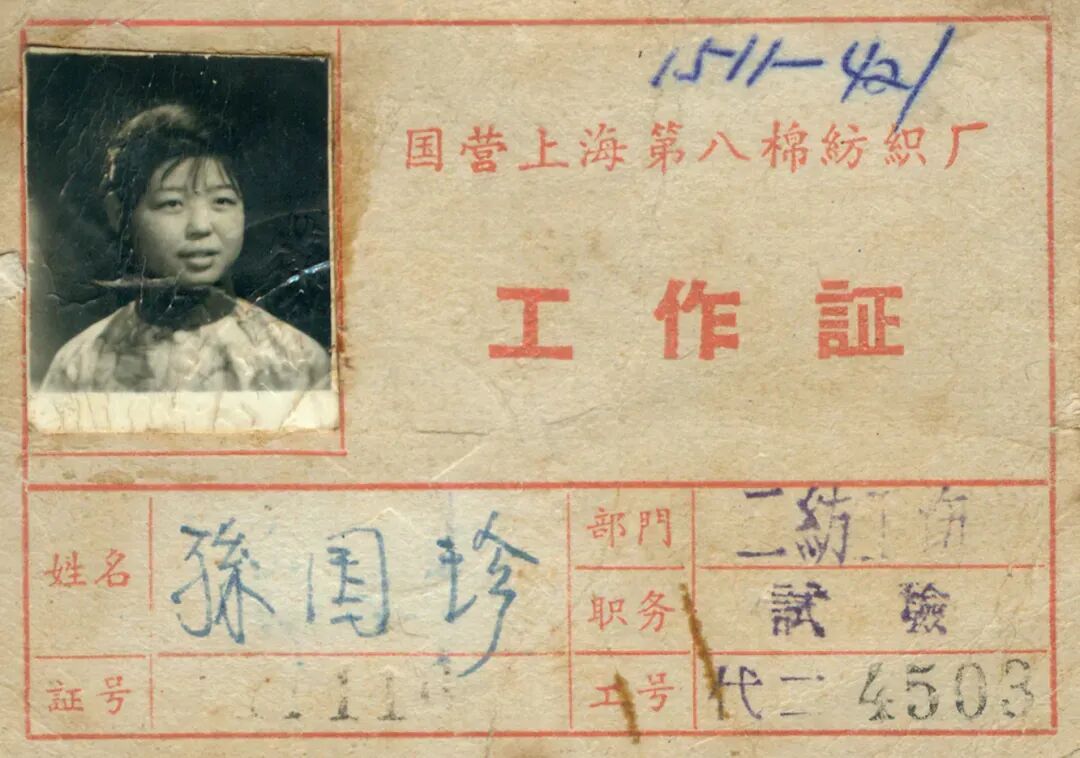 1511-421
国营上海第八棉紡織厂
工作証
姓名 孫国珍
部門 二紡工
职务 試驗
証号
工号 代二 4503